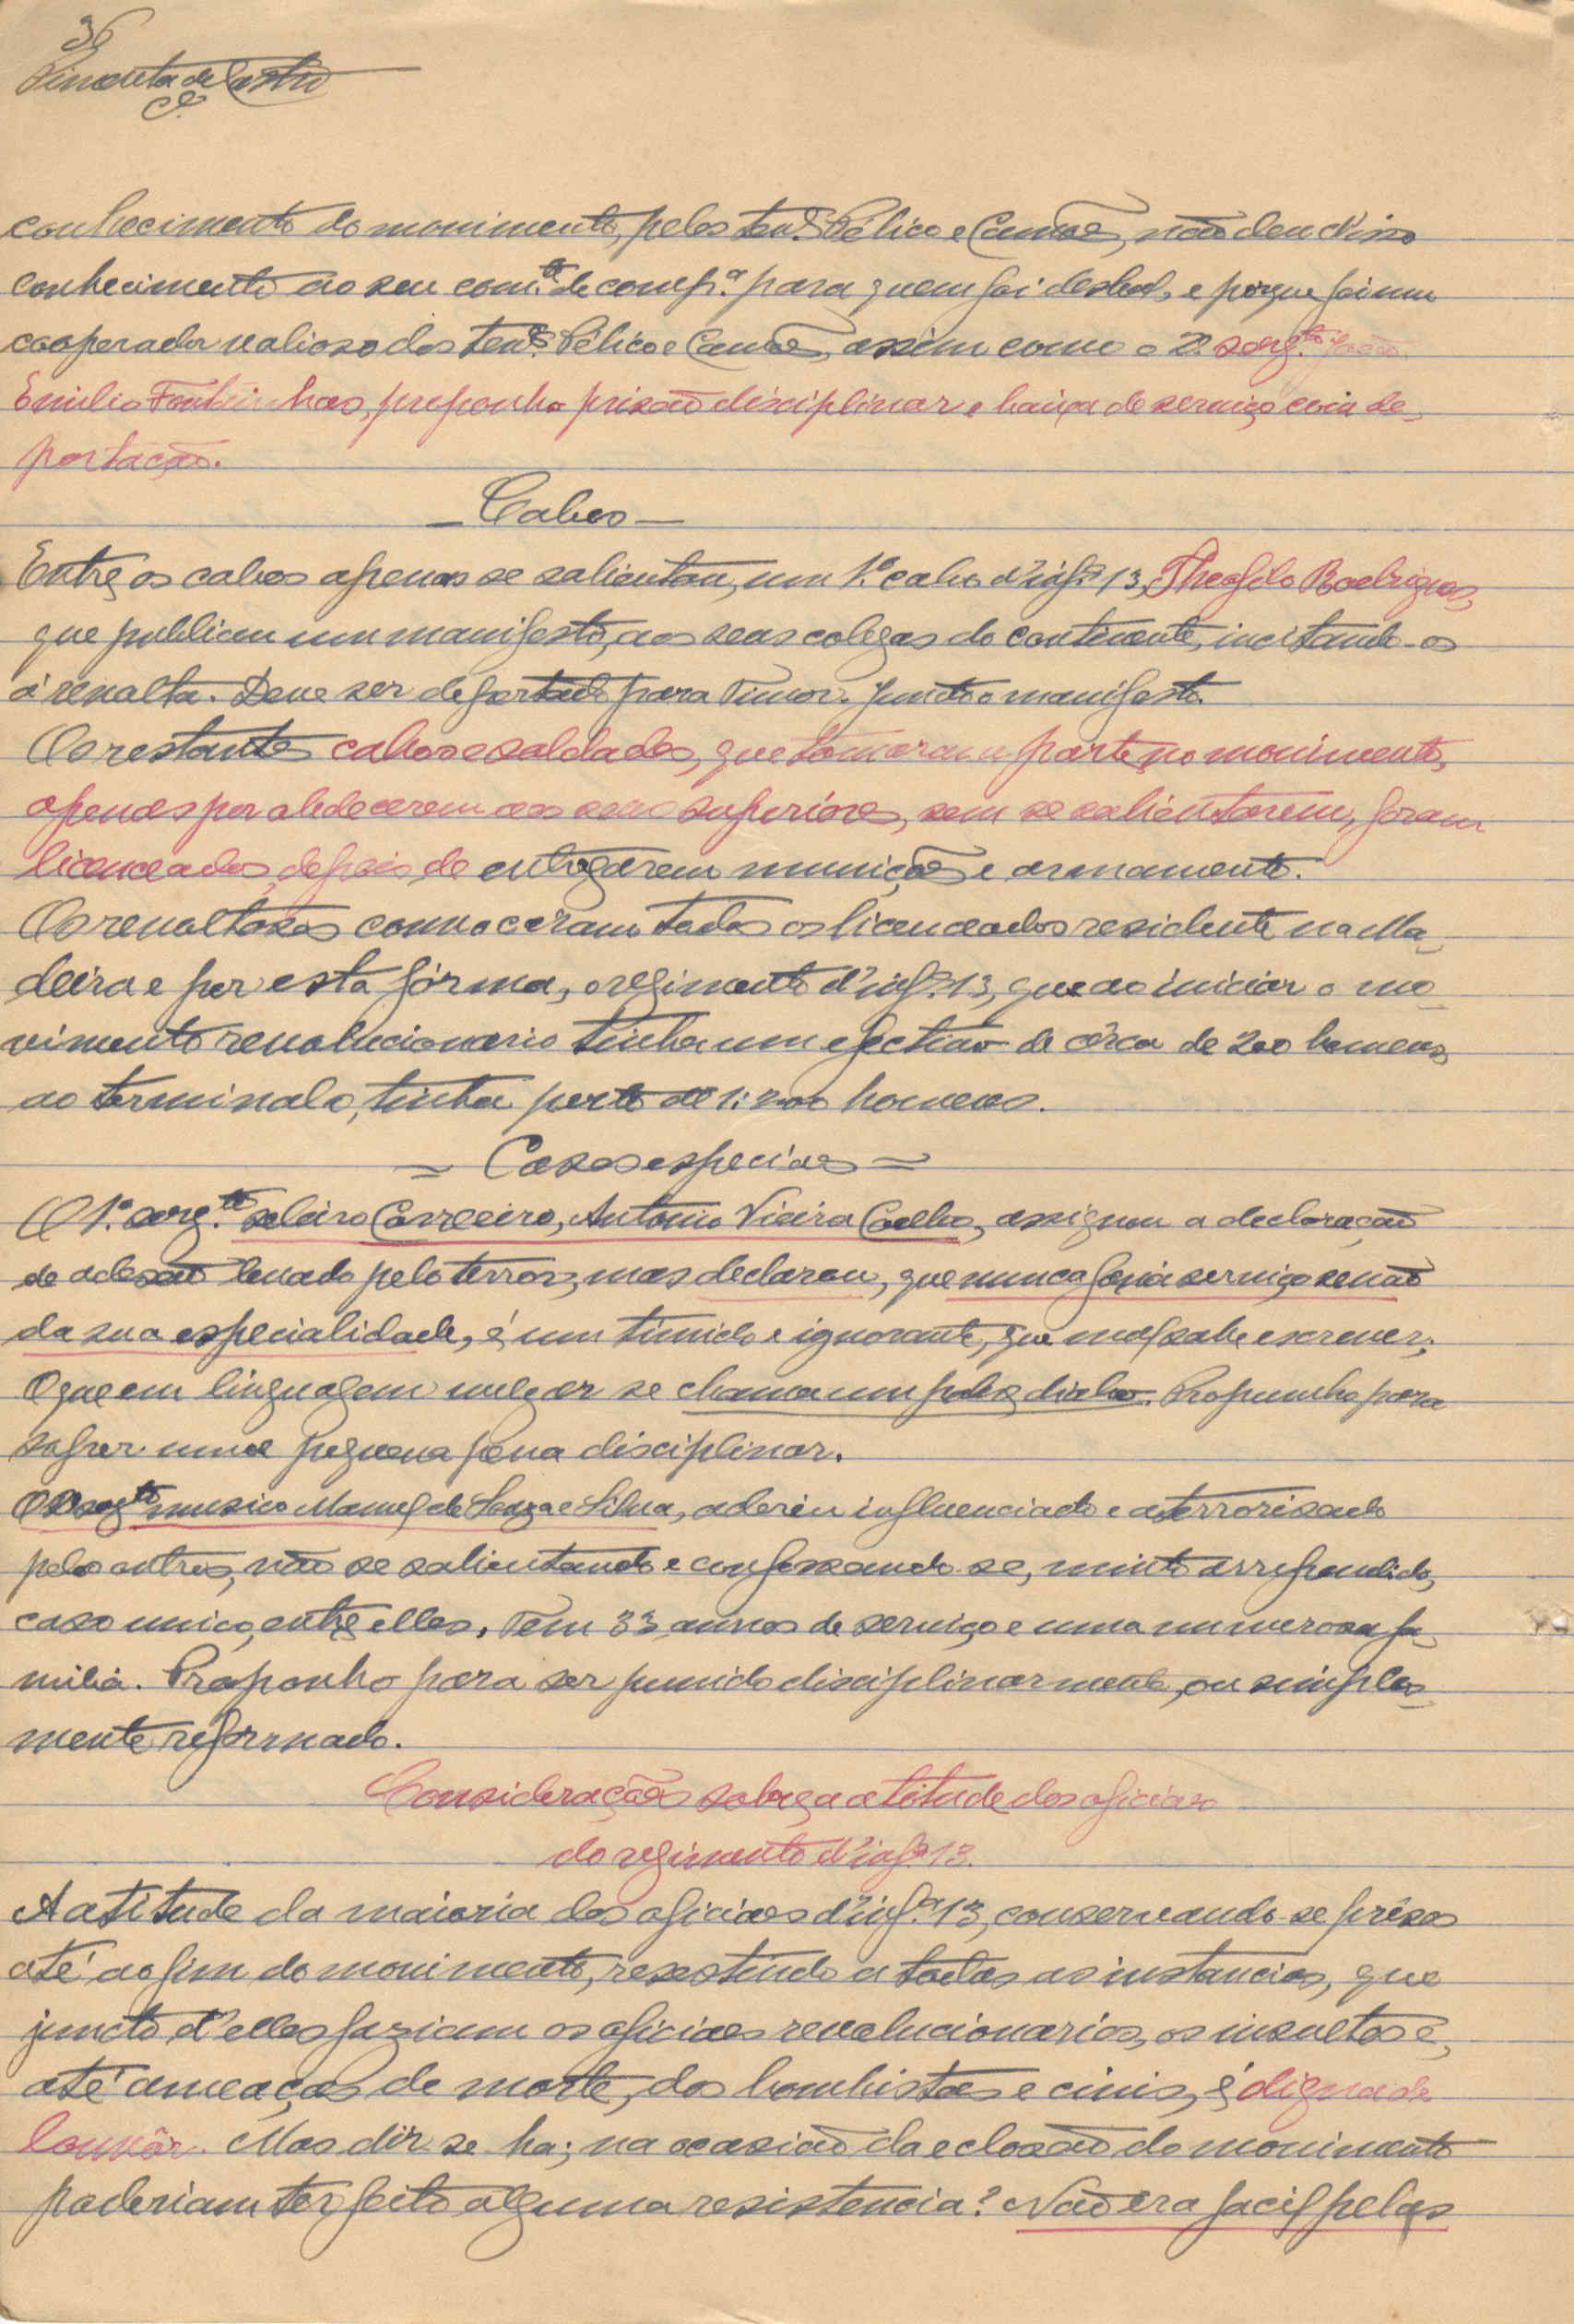 36
Pimenta de Castro
Cel.
conhecimento do movimento, pelos ten.es Pélico e Camões, não deu d'isso
conhecimento ao seu com.te de comp.ª para quem foi desleal, e porque foi um
cooperador valioso dos ten.es Pélico e Camões, assim como o 2.º sarg.to João
Emilio Fonteinhas, proponho prisão disciplinar e baixa de serviço com de-
portação.
— Cabos —
Entre os cabos apenas se salientou, um 1.º cabo d'inf.ª 13, Theofilo Rodrigues,
que publicou um manifesto, aos seus colegas do continente, incitando-os
á revolta. Deve ser deportado para Timor. Juncto o manifesto.
Os restantes cabos e soldados, que tomaram parte, no movimento,
apenas por obedecerem aos seus superiores, sem se salientarem, foram
licenceados, depois de entregarem munições e armamento.
Os revoltosos convocaram todos os licenceados residente na Ma-
deira e por esta fórma, o regimento d'inf.ª 13, que ao iniciar o mo-
vimento revolucionario tinha um efectivo de cêrca de 200 homens,
ao terminal-o, tinha perto de 1:200 homens.
= Casos especiaes =
O 1.º sarg.to seleiro Correeiro, Antonio Vieira Coelho, assignou a declaração
de adesão levado pelo terror, mas declarou, que nunca faria serviço senão
da sua especialidade, é um timido e ignorante, que mal sabe escrever,
O que em linguagem vulgar se chama um pobre diabo. Propunho para
sofrer uma pequena pena disciplinar.
O sarg.to musico Manuel de Souza e Silva, aderiu influenciado e aterrorisado
pelos outros, não se salientando e confessando-se, muito arrependido,
caso unico, entre elles. Tem 33 annos de serviço e uma numerosa fa-
milia. Proponho para ser punido disciplinarmente, ou simples-
mente reformado.
Considerações sobre a atitude dos oficiaes
do regimento d'inf.ª 13.
A atitude da maioria dos oficiaes d'inf.ª 13, conservando-se prêsos
até ao fim do movimento, resestindo a todas as instancias, que
juncto d'elles faziam os oficiaes revolucionarios, os insultos e,
até ameaças de morte, dos bombistas e civis, é digna de
louvôr. Mas dir-se ha; na ocasião da eclosão do movimento
poderiam ter feito alguma resistencia? Não era facil pelas